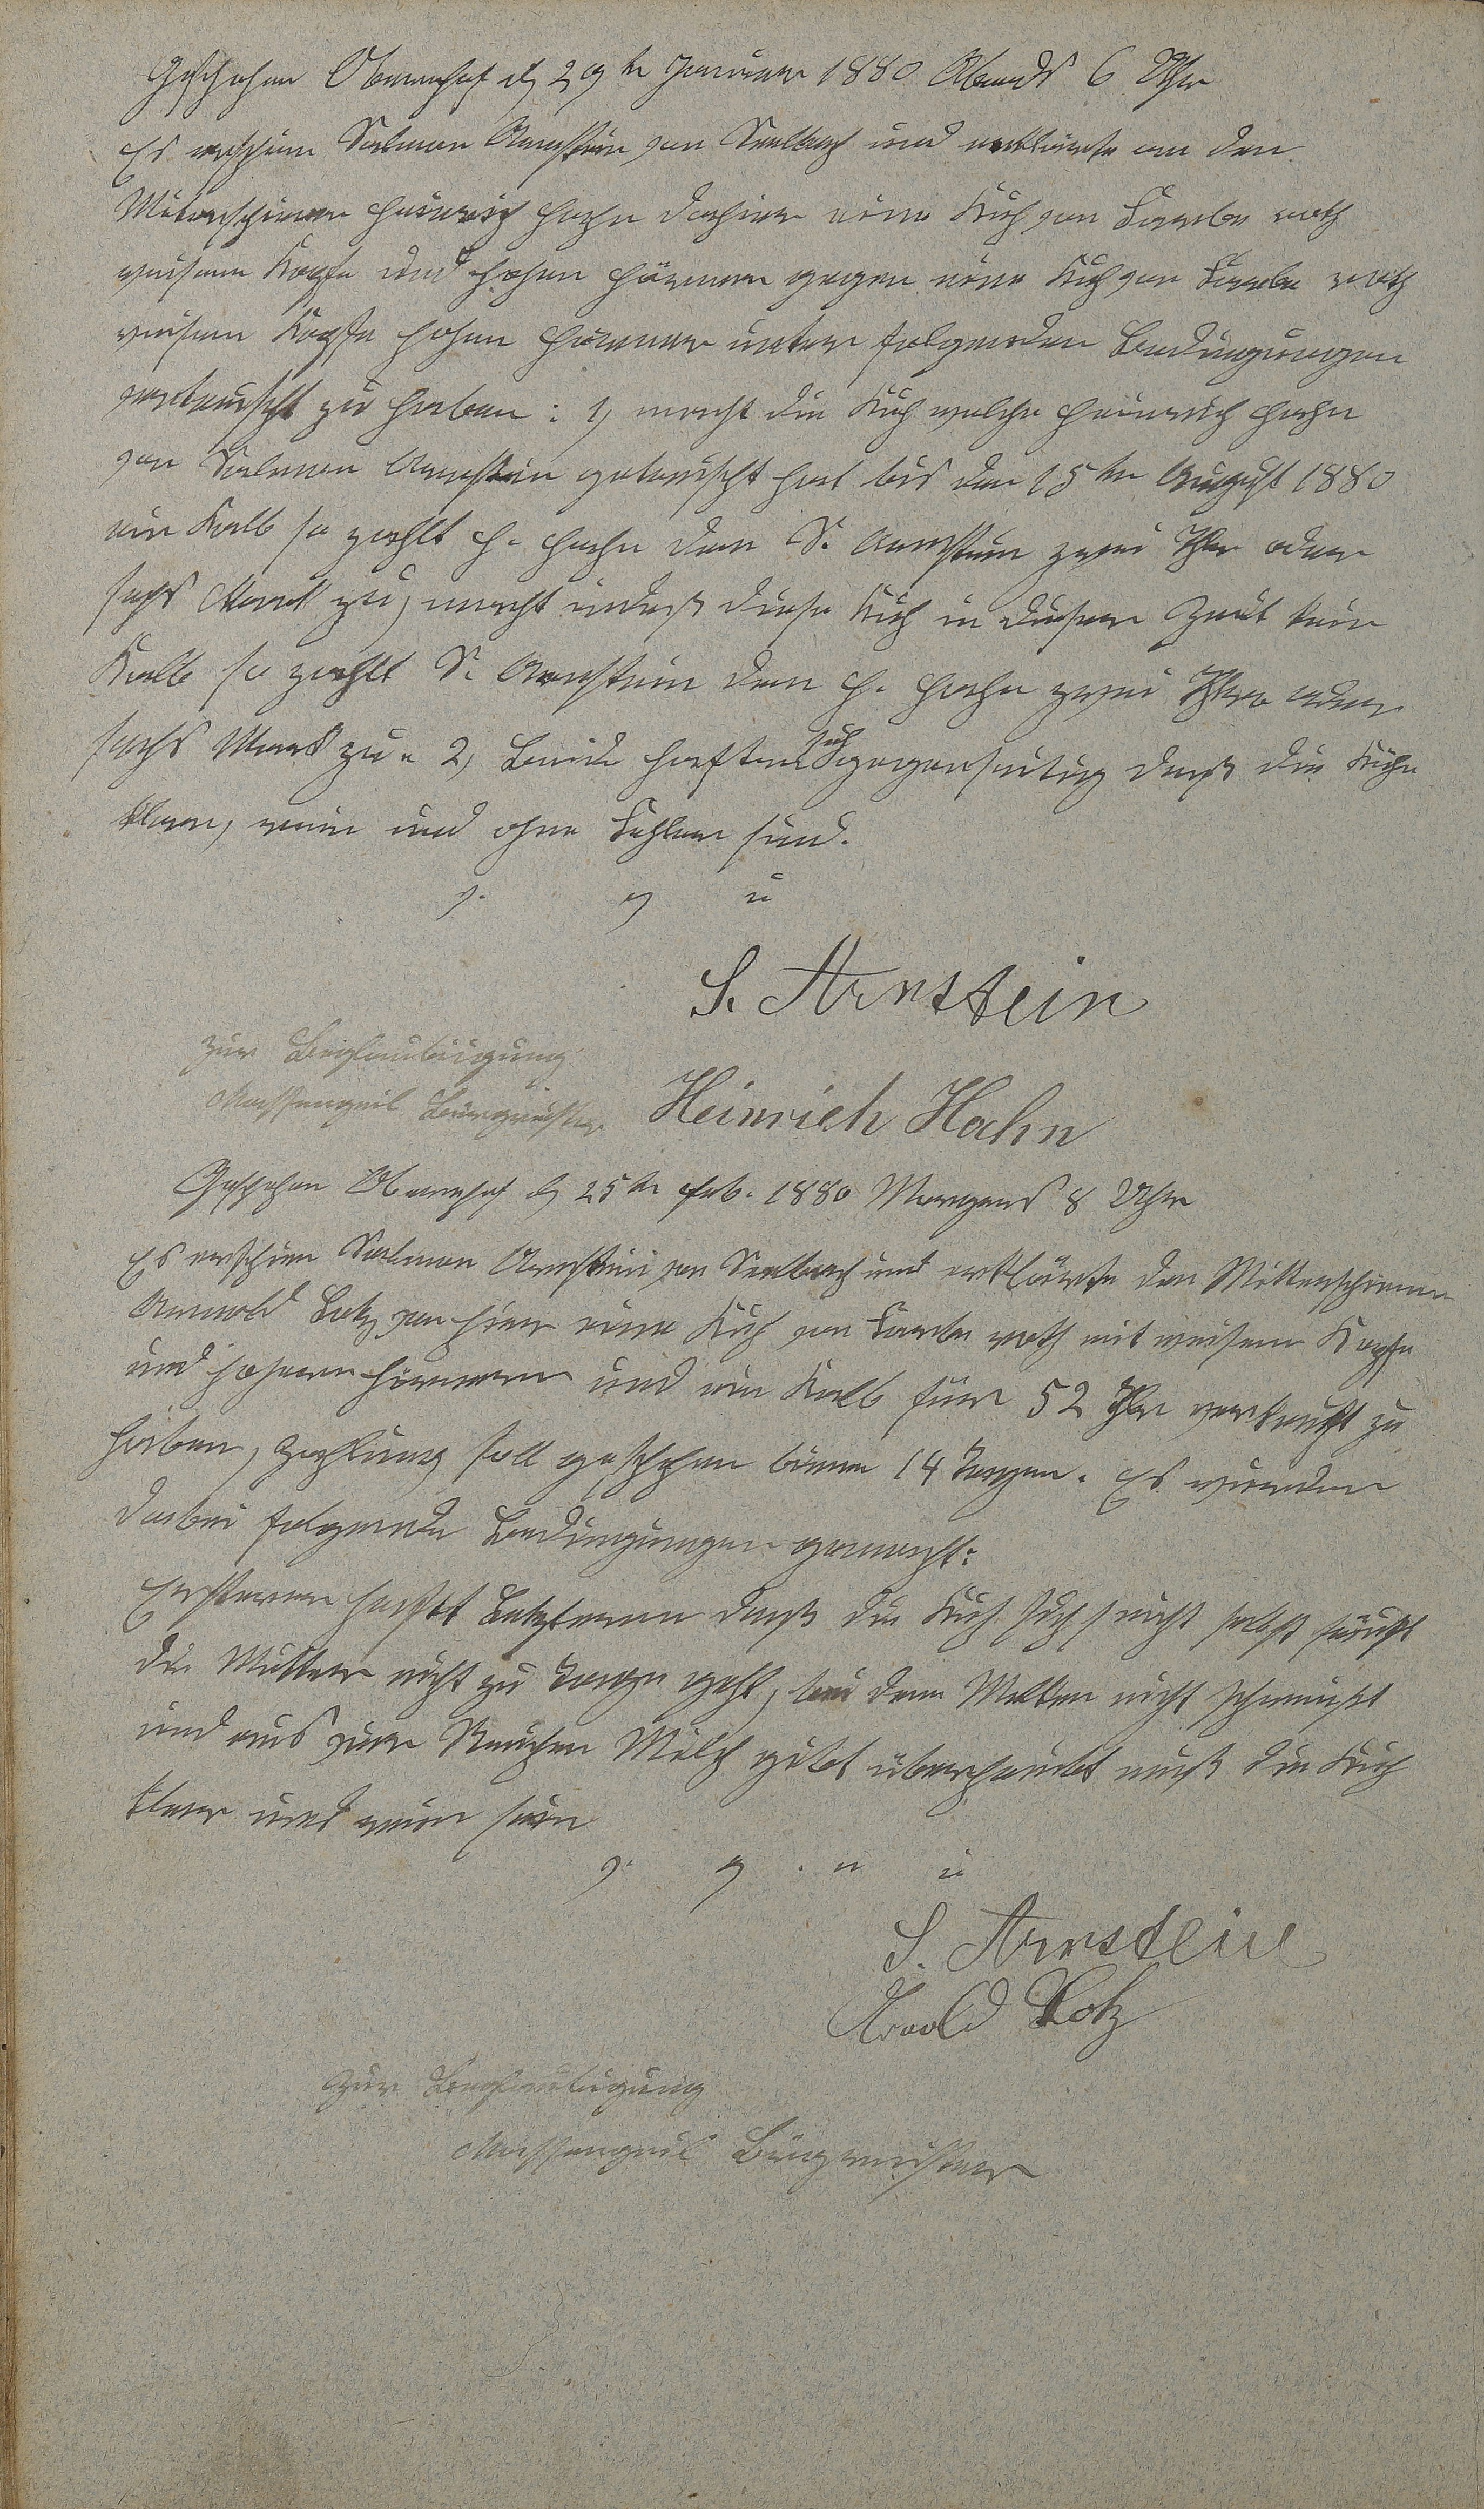 Geschehen Obernhof d 29te Januar 1880 Abends 6 Uhr
Es erschien Salmon Arnstein von Seelbach und erklärte an den
Miterschienen Heinrich Hahn dahier eine Kuh von Farbe roth
weisem Kopfe und hohen Hörner gegen eine Kuh von Farbe roth
weisem Kopfe hohen Hörner unter folgenden Bedingungen
vertauscht zu haben: 1) macht die Kuh welche Heinrich Hahn
von Salmon Arnstein getauscht hat bis den 15ten August 1880
ein Kalb so zahlt H. Hahn dem S. Arnstein zwei Thlr oder
sechs Mark zu, macht indeß diese Kuh in dieser Zeit kein
Kalb so zahlt S. Arnstein dem H. Hahn zwei Thlr oder
sechs Mark zu. 2) Beide haften sich gegenseitig daß die Kühe
klar, rein und ohne Fehler sind.
v. g u
S. Arnstein
Zur Beglaubigung
Massengeil Bürgmeister
Heinrich Hahn
Geschehen Obernhof d 25te Feb. 1880 Morgens 8 Uhr
Es erschien Salmon Arnstein von Seelbach und erklärte den Mitterschienen
Arnold Lotz von hier eine Kuh von Farbe roth mit weisem Kopfe
und hohen Hörnern und ein Kalb für 52 Thlr verkauft zu
haben, Zahlung soll geschehen binnen 14 Tagen. Es wurden
dabei folgende Bedingungen gemacht:
Ersterer haftet Letzteren daß die Kuh sich nicht selbst säuft
die Mutter nicht zu Tage geht, bei dem Melken nicht schmeißt
und aus vier Strichen Milch gibt überhaubt muß die Kuh
klar und rein sein
v. g. u u
S. Arnstein
Arnold Lotz
Zur Beglaubigung
Massengeil Bürgmeister